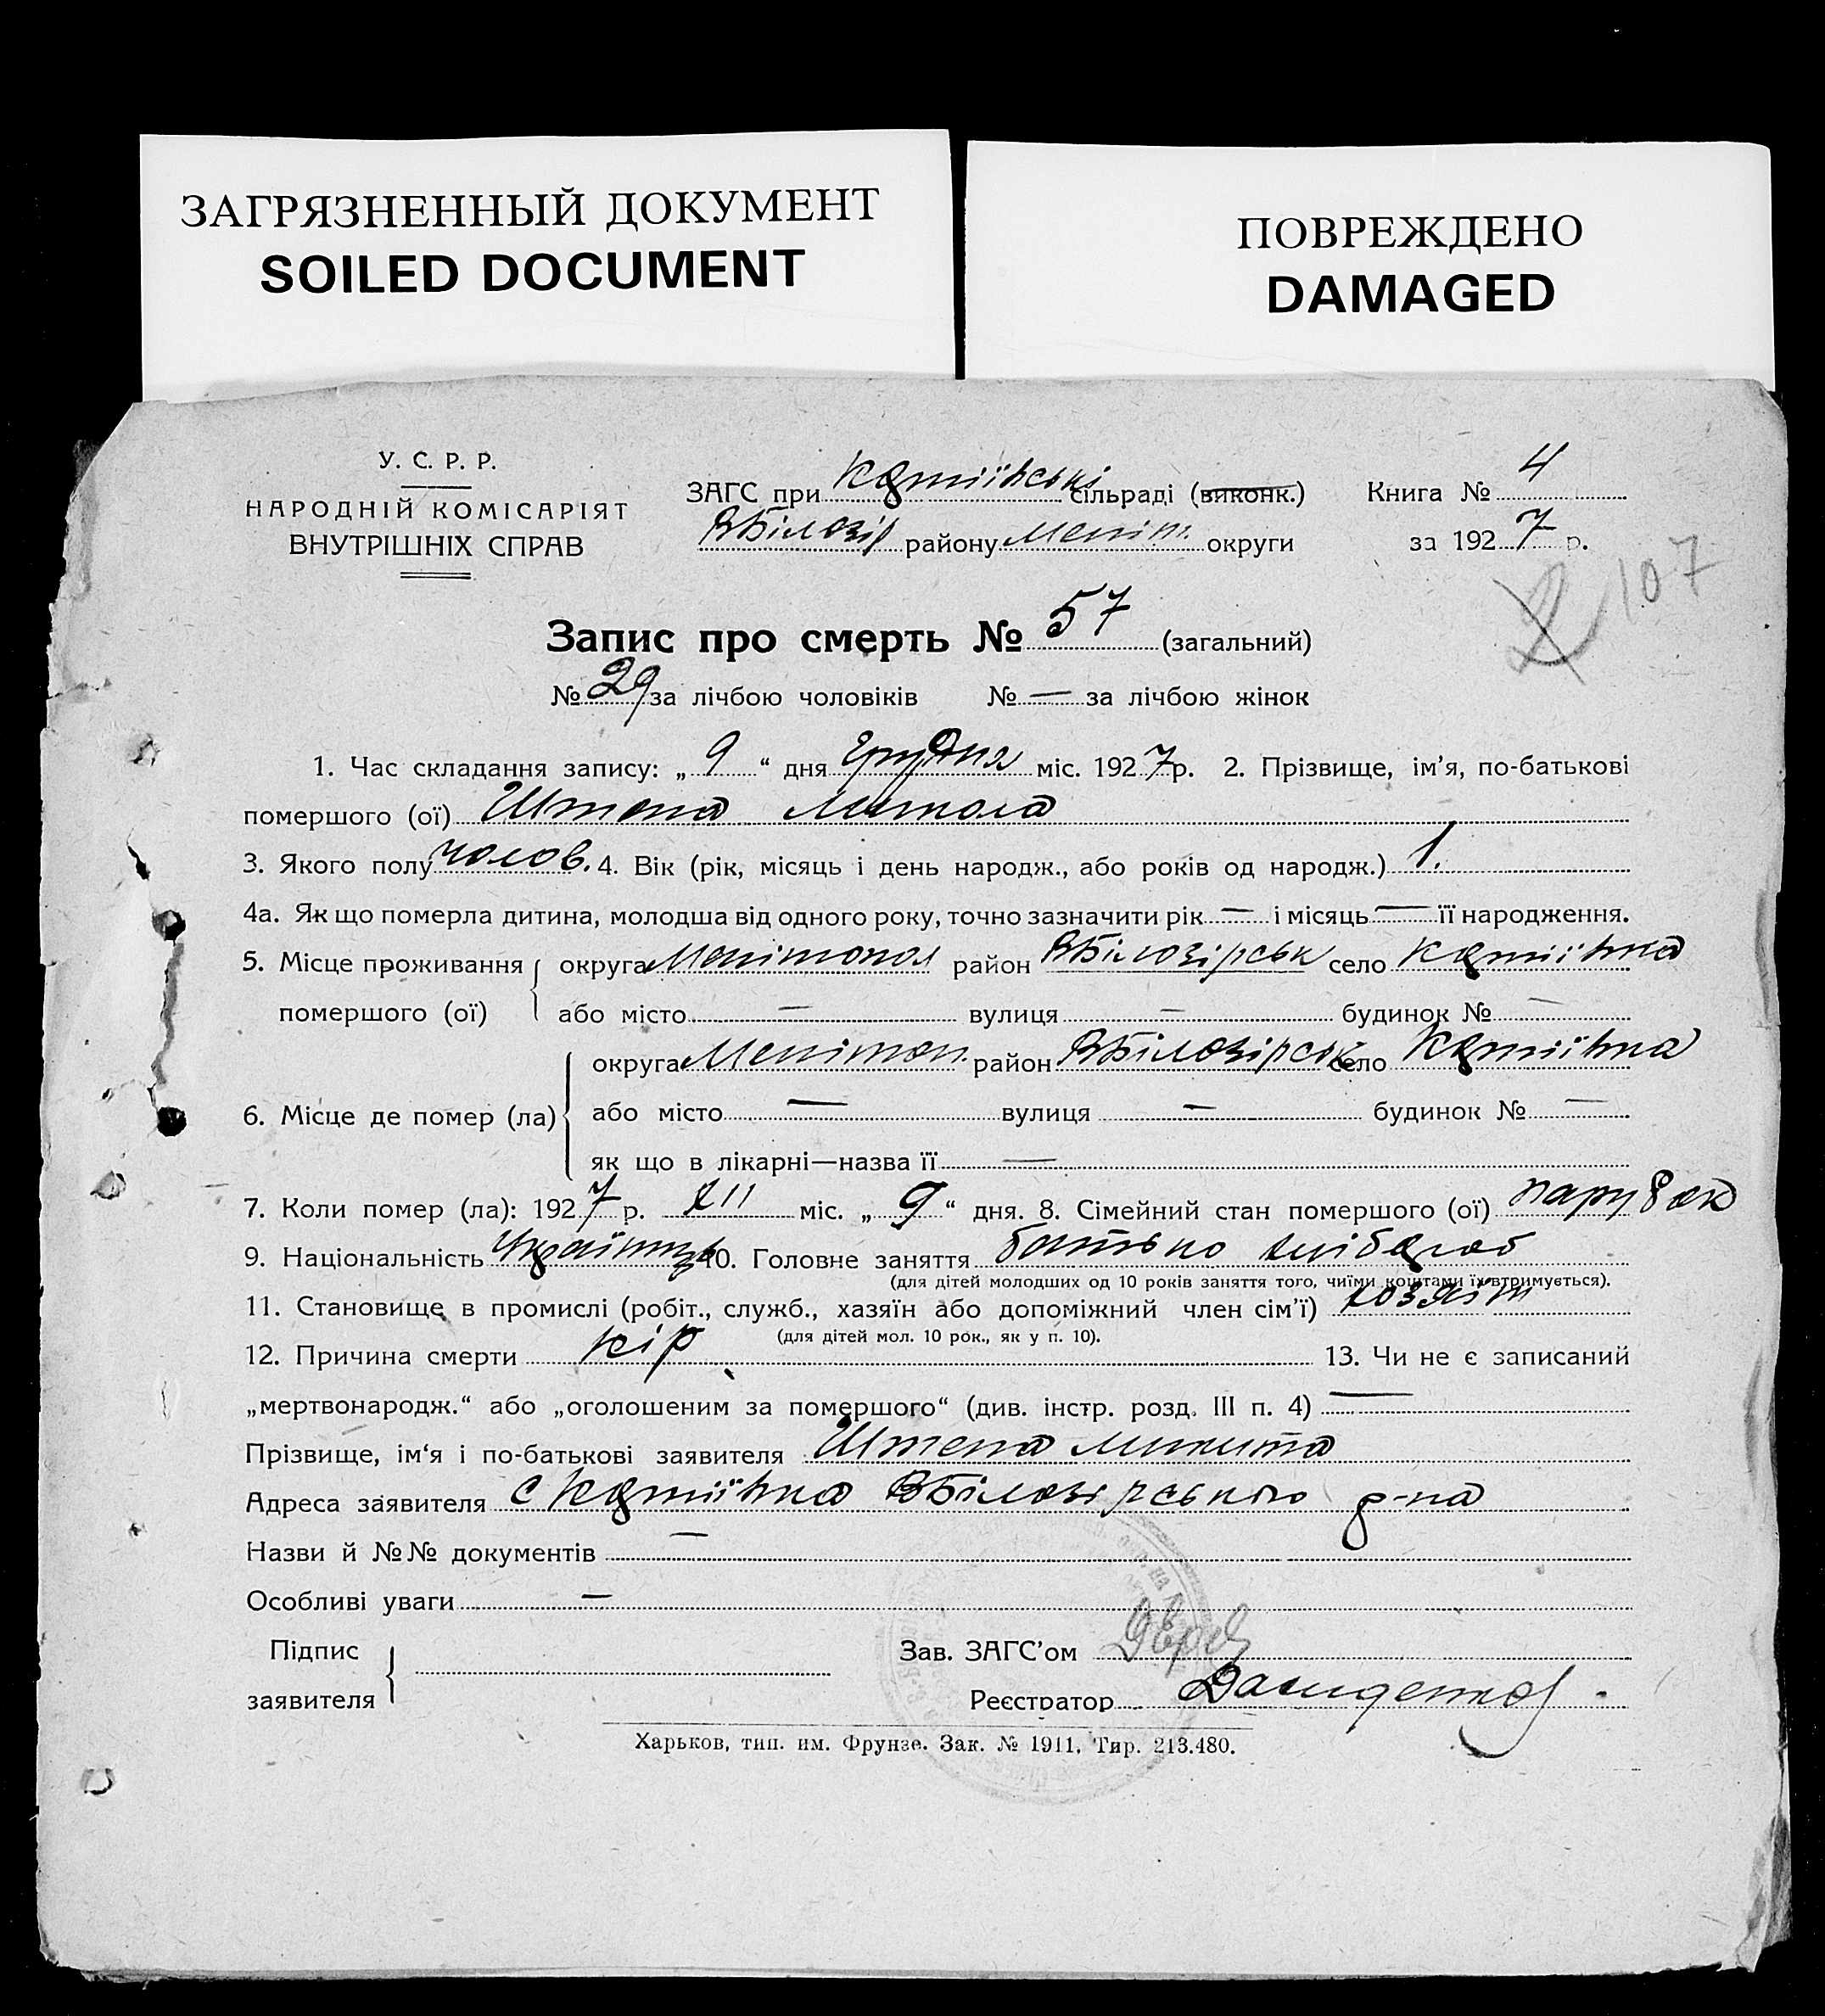 ЗАГРЯЗНЕННЫЙ ДОКУМЕНТ
SOILED DOCUMENT
ПОВРЕЖДЕНО
DAMAGED
У. С. Р. Р.
НАРОДНІЙ КОМІСАРІЯТ
ВНУТРІШНІХ СПРАВ
ЗАГС при сільраді (виконк.)
ВБілозір району Меліт. округи
Книга № 4
за 1927 р.
107
Запис про смерть № 57 (загальний)
№ 29 за лічбою чоловіків № — за лічбою жінок
1. Час складання запису: „ 9 “ дня грудня міс. 1927 р. 2. Прізвище, ім’я, по-батькові
помершого (ої) Штепа Микола
3. Якого полу чолов. 4. Вік (рік, місяць і день народж., або років од народж.) 1.
4а. Як що померла дитина, молодша від одного року, точно зазначити рік — і місяць — її народження.
5. Місце проживання помершого (ої) округа Мелітопол район ВБілозірськ село
або місто — вулиця — будинок № —
6. Місце де помер (ла) округа Мелітоп. район ВБілозірськ село
або місто — вулиця — будинок № —
як що в лікарні—назва її —
7. Коли помер (ла): 1927 р. XII міс. „ 9 “ дня. 8. Сімейний стан помершого (ої) парубок
9. Національність Українець 10. Головне заняття батько хлібороб
(для дітей молодших од 10 років заняття того, чиїми коштами їх втримується).
11. Становище в промислі (робіт., служб., хазяїн або допоміжний член сім’ї) хозяїн
(для дітей мол. 10 рок., як у п. 10).
12. Причина смерти кір 13. Чи не є записаний
„мертвонародж.“ або „оголошеним за помершого“ (див. інстр. розд. III п. 4) —
Прізвище, ім‘я і по-батькові заявителя Штепа Микита
Адреса заявителя с ВБілозірського р-на
Назви й №№ документів —
Особливі уваги —
Підпис
заявителя
Зав. ЗАГС’ом
Реєстратор
Харьков, тип. им. Фрунзе. Зак. № 1911, Тир. 213.480.